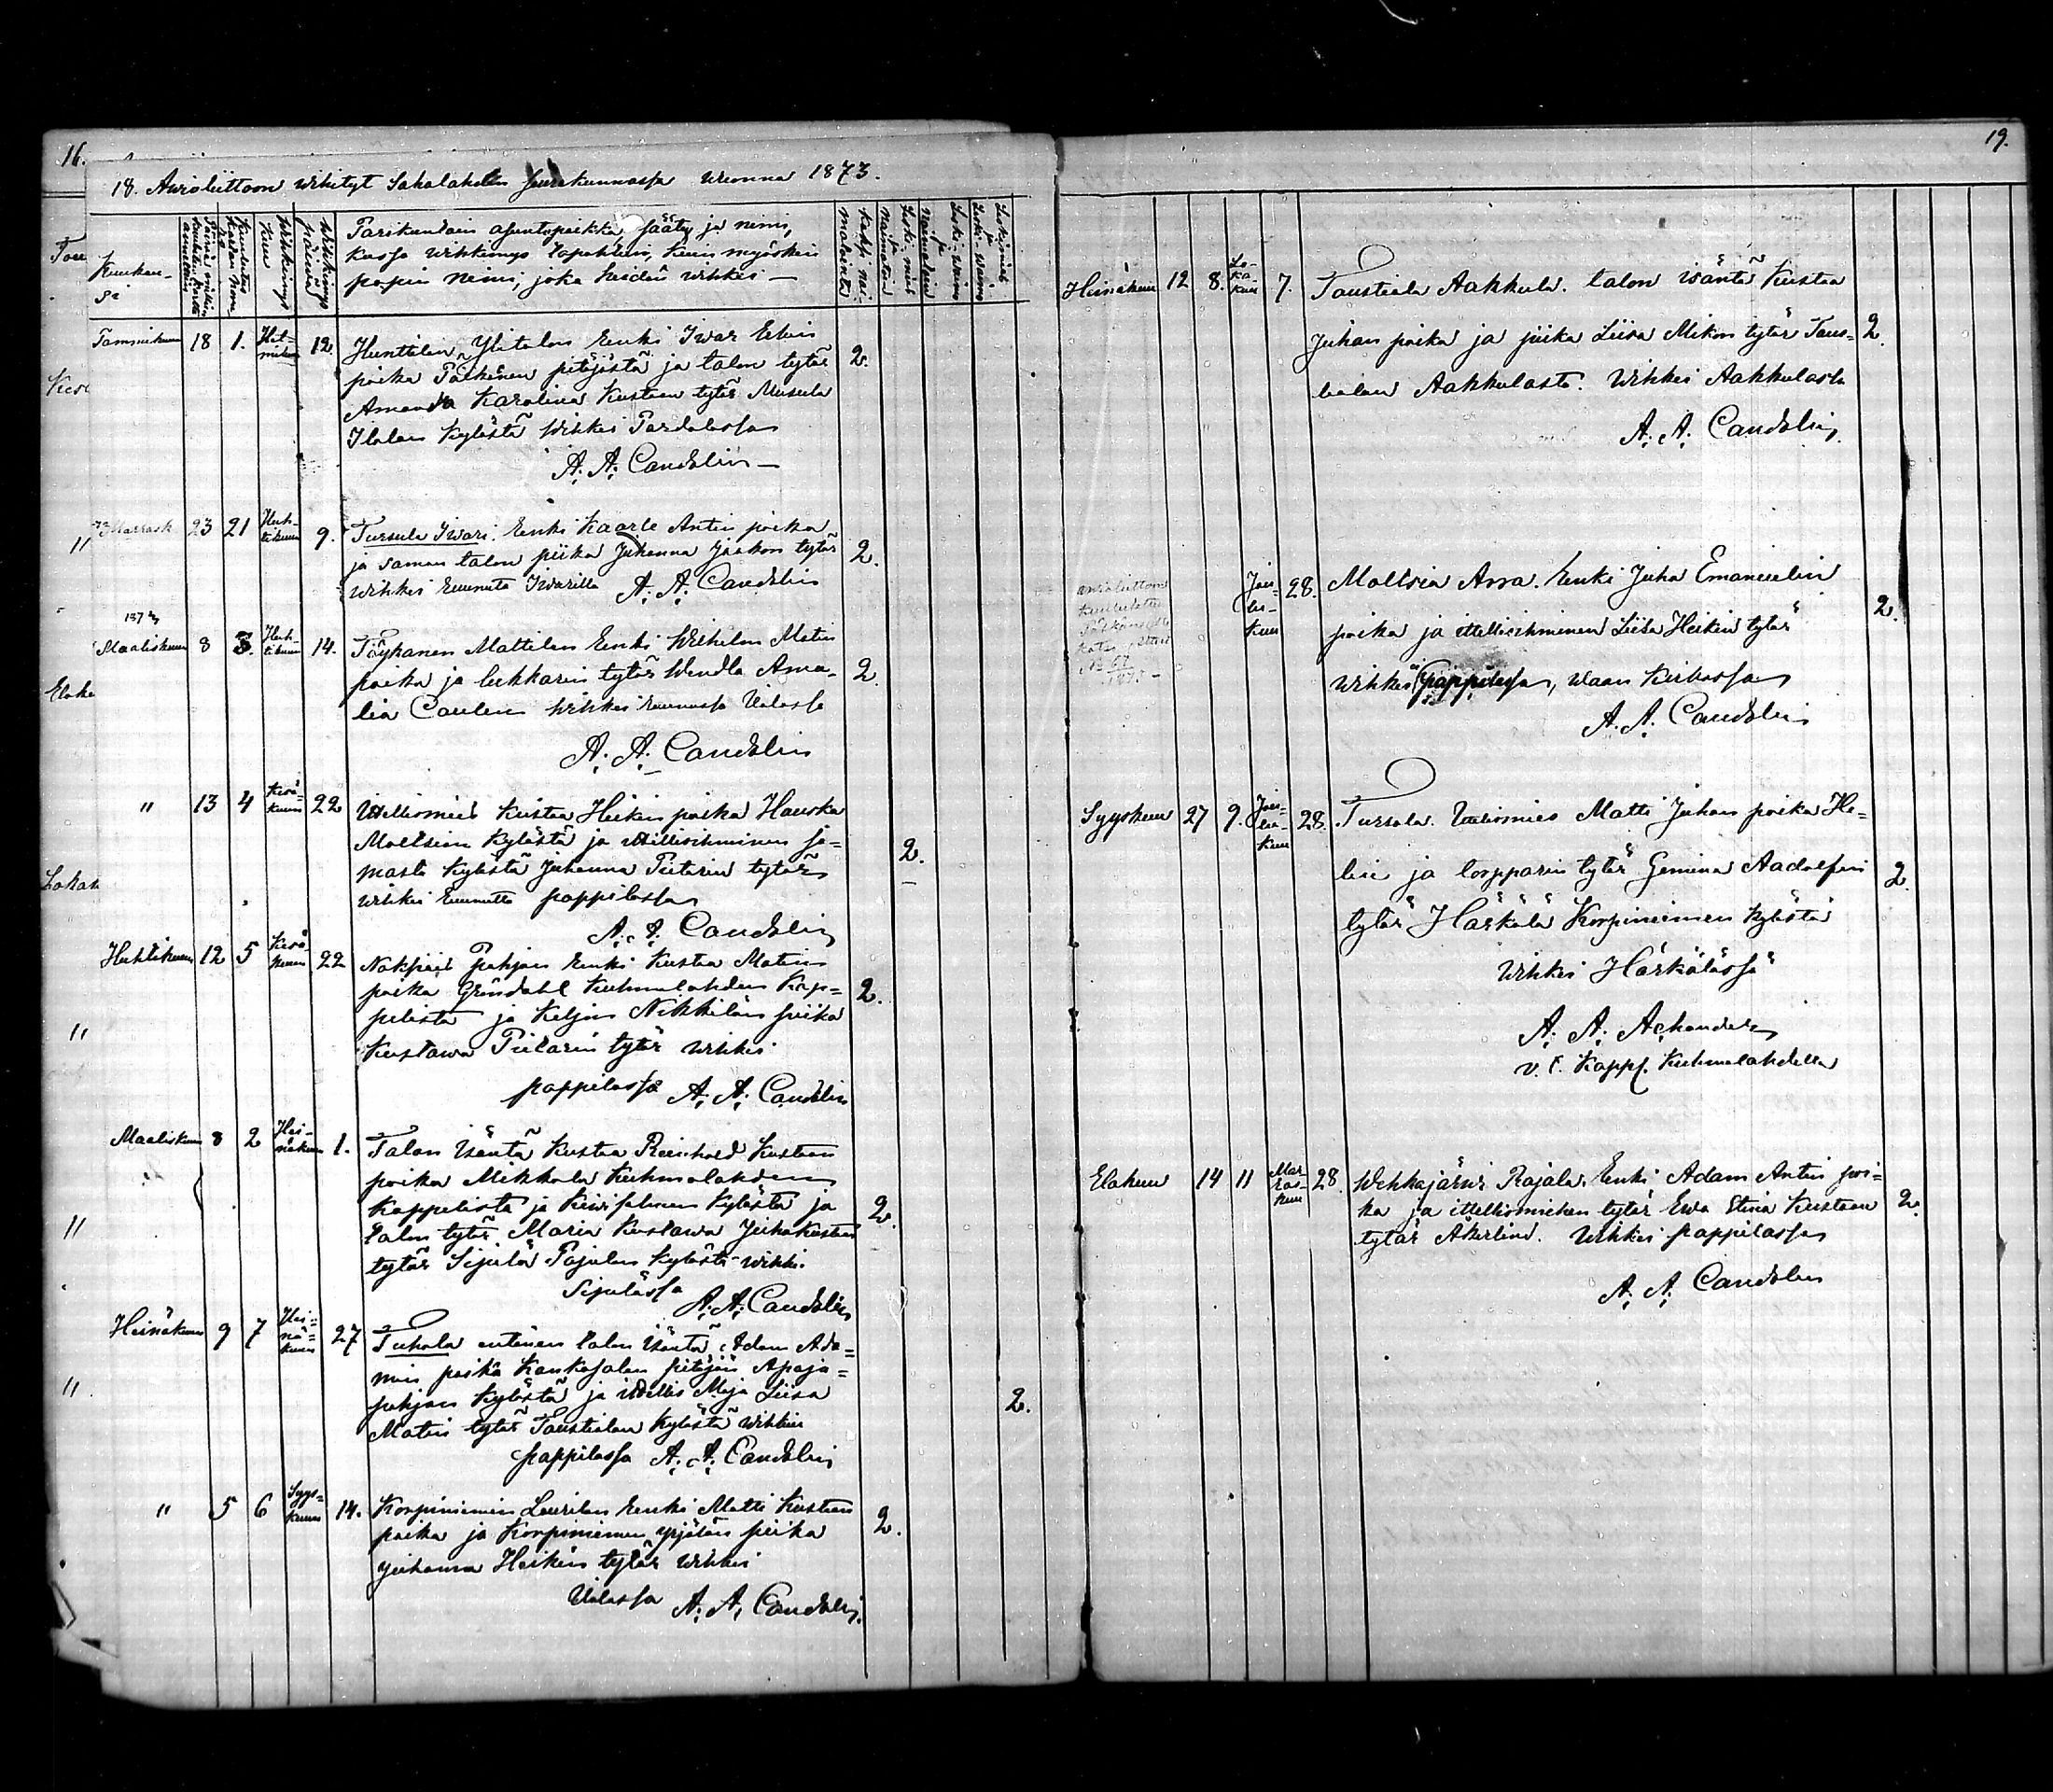 16.
18. Awioliittoon wihityt Sahalahden seurakunnassa wuonna 1873.
Kuukau-
si
Wihkimys
kuu
Wihkimys
päiwä
Pariskundain asuntopaikka, sääty ja nimi,
kussa wihkimys tapahtui, kuin myöskin
papin nimi, joka heidän wihki —
Kaksi nai-
matointa
Leskimies
ja
Leski-waimo
Tammikuu 18 1. Hel-
mikuu 12. Hunttilan Ylitalon Renki Iwar Elin
poika Pälkänen pitäjästä ja talon tytär 2.
Amanda Karolina Kustaan tytär Musula
Ilolan kylästä Wihki Pardalassa
A. A. Candolin —
72 Marrask 23 21 Huh-
tikuun 9. Tursula Iwari. Renki Kaarle Antin poika
ja saman talon piika Juhanna Jaakon tytär 2.
wihki Iwarilla A. A. Candolin
1873
Maaliskuu 8 3. Huh-
tikuun 14. Töykänen Mattilan Renki Wilhelm Matin
poika ja lukkarin tytär Wendla Ama- 2.
lia Caulen Wihki Uotilassa
A. A. Candolin
" 13 4 Kesä-
kuun 22 Itsellismies Kustaa Heikin poika Hauska
Moltsian kylästä ja itsellisihminen sa- 2.
masta kylästä Juhanna Pietarin tytär
wihki pappilassa
A. A. Candolin
Huhtikuu 12 5 Kesä-
kuun 22 Pohjan Renki Kustaa Matin
poika Gröndahl Kuhmalahden Kap- 2.
pelista ja Keljon Nikkilän piika
Kustawa Pietarin tytär wihki
pappilassa A. A. Candolin
Maaliskuu 8 2 Hei-
näkuun 1. Talon Isäntä Kustaa Reinhold Kustaan
poika Mikkola Kuhmalahden
Kappelista ja kylästä ja 2.
talon tytär Maria Kustawa Juha Kustaan
tytär Sipilä Pajulan kylästä wihki
Sipilässä A. A. Candolin
Heinäkuu 9 7 Hei-
nä-
kuun 27 Tuhala entinen talon Isäntä Adam Ada-
min poika Kankasalan pitäjän Apaja-
pohjan kylästä ja itsellis Maja Liisa 2.
Matin tytär Taustialan kylästä wihki
pappilassa A. A. Candolin
" 5 6 Syys-
kuun 14. Korpiniemen Laurilan Renki Matti Kustaan
poika ja Korpiniemen Yrjölän piika 2.
Juhanna Heikin tytär wihki
Uotilassa A. A. Candolin.
19.
Heinäkuu 12 8. Lo-
ka-
kuu 7. Taustiala Aakkula. talon isäntä Kustaa
Juhan poika ja piika Liisa Mikon tytär Taus- 2.
tialan Aakkulasta. Wihki Aakkulassa
A. A. Candolin.
Jou-
lu-
kuu 28. Moltsia Arra. Renki Juha Emanuelin
poika ja itsellisihminen Liisa Heikin tytär 2.
wihki pappilassa, waan Kirkossa
A. A. Candolin
Syyskuu 27 9. Jou-
lu-
kuu 28. Tursola. Itsellismies Matti Juhan poika He-
lin ja torpparin tytär Gemina Aadolfin 2.
tytär Härkälä Korpiniemen kylästä
Wihki Härkälässä
A. A. Achander
v. t. Kappl. Kuhmalahdella
Elokuu 14 11 Mar-
ras-
kuu 28 Wehkajärwi Rajala. Renki Adam Antin poi-
ka ja itsellismiehen tytär Ewa Stina Kustaan 2.
tytär Åkerlind. Wihki pappilassa
A. A. Candolin